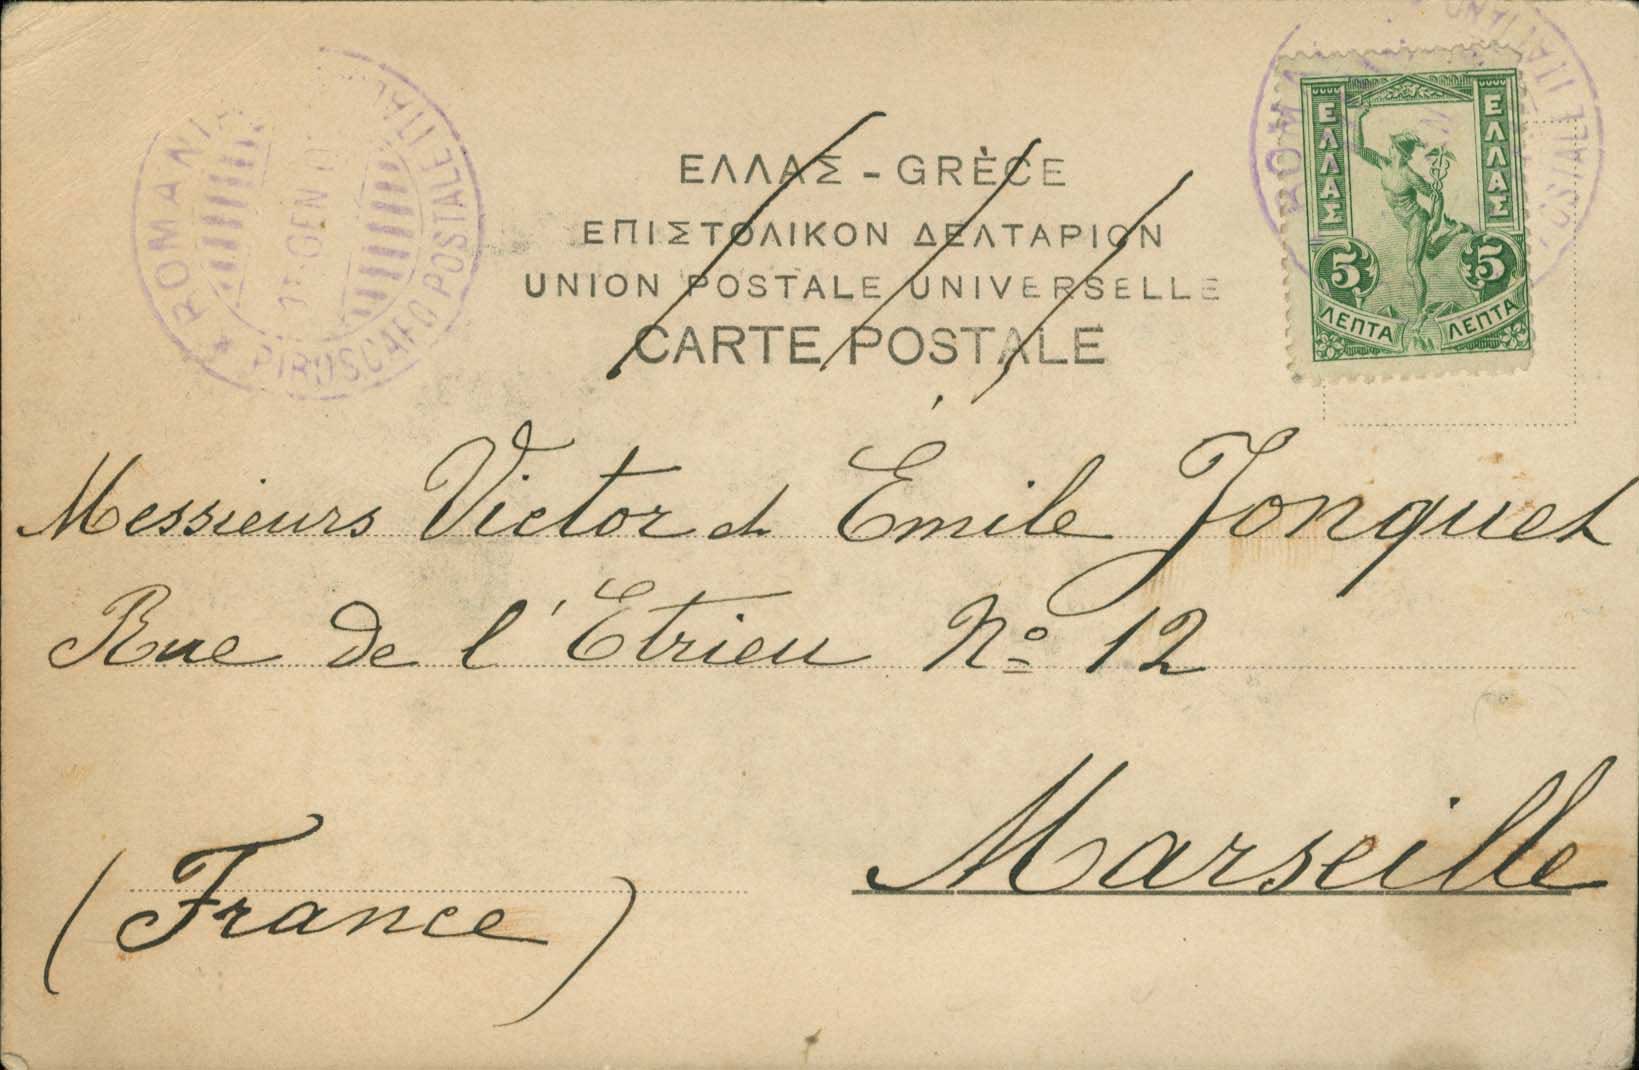 ROMANIA PIROSCAFO POSTALE ITAL
GEN
ΕΛΛΑΣ - GRÈCE
ΕΠΙΣΤΟΛΙΚΟΝ ΔΕΛΤΑΡΙΟΝ
UNION POSTALE UNIVERSELLE
CARTE POSTALE
ΕΛΛΑΣ ΕΛΛΑΣ
5 5
ΛΕΠΤΑ ΛΕΠΤΑ
Messieurs Victor et Émile Jonquet
Rue de l'Etrieu Nº 12
Marseille
(France)